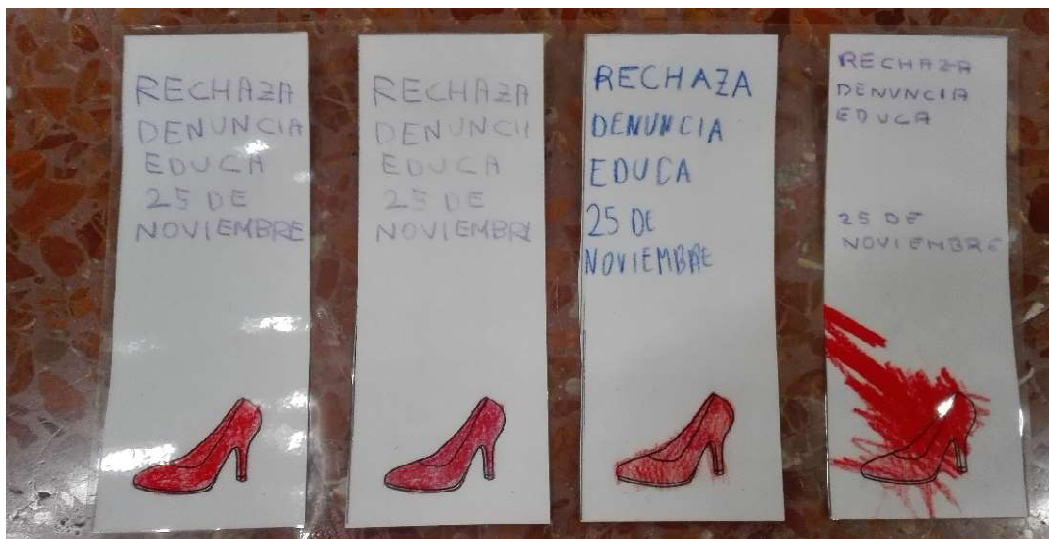 RECHAZA
DENUNCIA
EDUCA
25 DE
NOVIEMBRE
RECHAZA
DENUNCIA
EDUCA
25 DE
NOVIEMBRE
RECHAZA
DENUNCIA
EDUCA
25 DE
NOVIEMBRE
RECHAZA
DENUNCIA
EDUCA
25 DE
NOVIEMBRE